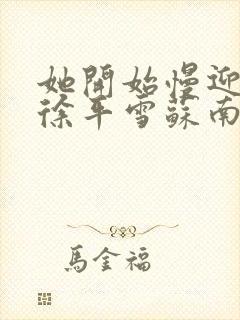 她開始慢迎
徐平雪蘇南
馬金福